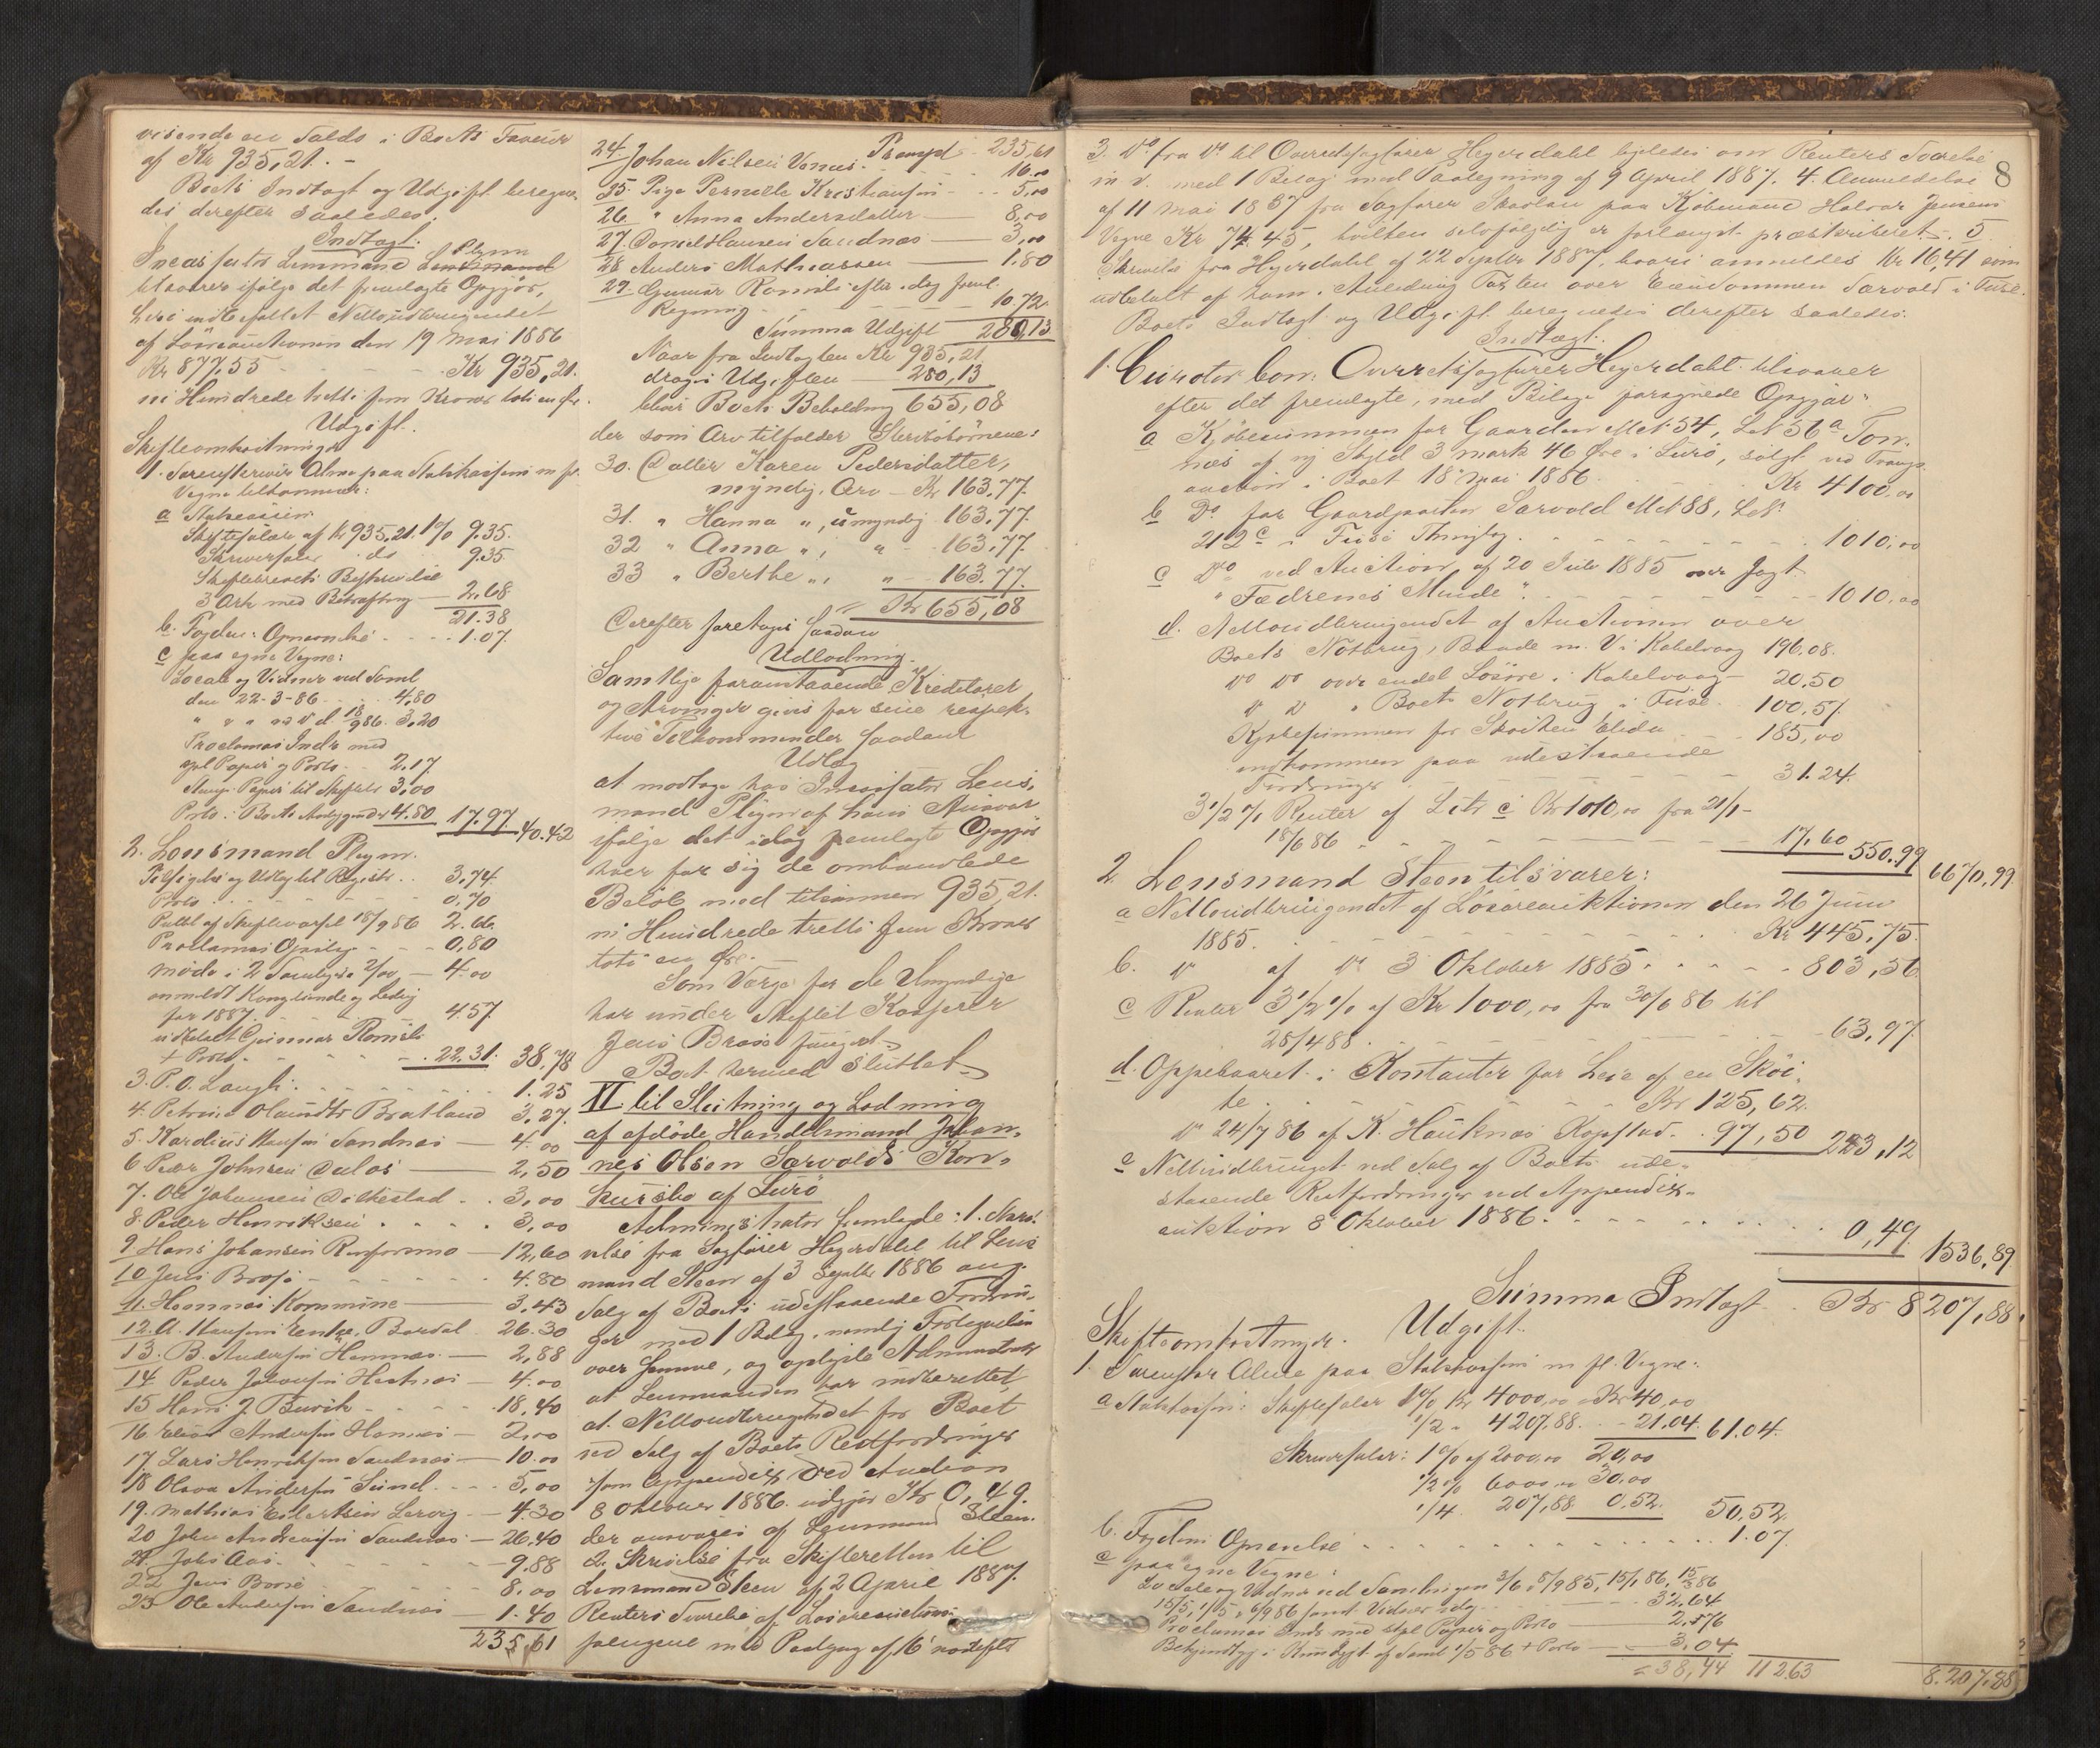 visende en Saldo i Boets Faveur
af Kr 935,21. -
Boets Indtægt og Udgift beregne-
des derefter saaledes:
Indtægt.
Incassator Lensmand Plejm
tilsvarer ifølge det fremlagte Opgjør,
heri indbefattet Nettoudbringendet
af Løsøreauctionen den 19 Mai 1886
Kr 877,55 - - - - Kr 935,21.
ni Hundrede tretti fem Kroner toti en Øre.
Udgift.
Skifteomkostninger
1. Sorenskriver Alme paa Statskassens m fl.
Vegne tilkommer:
a Statskassen:
Skiftesalær af Kr 935,21. 1% 9.35.
Skriversalær do 9.35
Skiftebrevets Beskrivelse
3 Ark med Bekræftning - 2.68
21.38
b. Fogden: Opnævnelse - - - 1.07.
c paa egne Vegne:
Locale og Vidner ved Saml
den 22-3-86 - 4,80
" " " 18/9 86. 3,20
Proclamas Inds med
stpl Papir og Porto - - 2.17.
Stemp. Papir til Skiftebr 3,00
Porto i Boets Anliggender 4.80 17.97. 40.42
2. Lensmand Plejm.
Tilsigelse og Udlæg til Registr. . 3,74.
Porto - - - 0,70
Publ af Skiftevarsel 18/9 86 2.66
Proclamas Opslag - - - 0,80
Møde i 2 Samlinger 2/00 - 4.00
for 1887 - - - 4.57.
udbetalt Gunnar Rømsli
+ Porto - - - 22.31. 38,78
3. P. O. Laugli - - - 1.25
4. Petrine Olausdtr Bratland 3,27.
5. Kardius Hansen Sandnæs - 4.00
6 Peder Johnsen Dalos - 2,50
7. Ole Johansen Dilkestad - . 3,00
8. Peder Henriksen - - - 3,00
9 Hans Johansen Rusfosmo - 12,60
10. Jens Brasø - - - 4.80
11. Hemnæs Kommune - 3,43
12. A. Hansens Enke, Bardal 26.30
13. B. Andersen Hemnæs - 2,88
14 Peder Johansen Hestnæs - 4.00
15 Hans J. Burvik - - - 18.40
16. Elias Andersen Hemnæs - 2.00
17 Lars Henriksen Sandnæs - 10.00
18 Olava Andersen Sund - - - 5,00
19. Mathias Eilertsen Lervig - 4.30
20 John Andreasen Sandnæs - 26.40
21. Johs Aas - - - 9.88
22 Jens Brasø - - - 8.00
23 Ole Andersen Sandnæs - 1.40
235,61
Transpt - 235,61
24. Johan Nilsen Vonnes - - - 16.00
25 Pige Pernille Kristiansen - - 5,00
26. " Anna Andersdatter - 8,00
27. Daniel Hansen Sandnæs - 3,00
28 Anders Mathiassen - 1.80
29 Gunnar Rømsli efter idag freml.
Regning - - - 10.72.
Summa Udgift 280,13
Naar fra Indtægten Kr 935,21
drages Udgiften - 280,13
bliver Boets Beholdning 655,08
der som Arv tilfalder Sterbobørnene:
30. Datter Karen Pedersdatter,
myndig, Arv - Kr 163,77.
31. " Hanna ", umyndig 163,77.
32 " Anna ", " - 163,77.
33 " Berthe ", " - 163.77.
Kr 655,08
Derefter foretoges saadan
Udlodning.
Samtlige foranstaaende Kreditorer
og Arvinger gives for sine respek-
tive Tilkommender saadant
Udlæg
at modtage hos Incassator Lens-
mand Plejm af hans Ansvar
ifølge det idag fremlagte Opgjør
hver for sig de omhandlede
Beløb med tilsammen 935,21.
ni Hundrede tretti fem Kroner
toti en Øre.
Som Værge for de Umyndige
har under Skiftet Kasserer
Jens Brasø fungeret.
Boet hermed Sluttet.
XI til Slutning og Lodning
af afdøde Handelsmand Johan-
nes Olsen Sarvolds Kon-
kursbo af Lurø
Administrator fremlagde: 1. Skri-
velse fra Sagfører Hejerdahl til Lens
mand Steen af 3 Septbr 1886 ang.
Salg af Boets udestaaende Fordrin-
ger med 1 Bilag, nemlig Fortegnelse
over samme, og oplyste Administrator
at Lensmanden har indberettet,
at Nettoudbringendet for Boet
ved Salg af Boets Restfordringer
som Appendix ved Auction
8 Oktober 1886. udgjør Kr 0,49.
der ansvares af Lensmand Steen.
2. Skrivelse fra Skifteretten til
Lensmand Steen af 2 April 1887.
Renters Svarelse af Løsøreauctions-
pengene med Paategng af 16 næstefter
8
3. Do fra Do til Overretssagfører Hejerdahl ligeledes om Renters Svarelse
m v. med 1 Bilag med Paategning af 9 April 1887. 4. Anmeldelse
af 11 Mai 1887 fra Sagfører Skavlan paa Kjøbmand Halvor Jensens
Vegne Kr 74.45, hvilken selvfølgelig er forlængst præskriberet. 5
Skrivelse fra Hejerdahl af 22 Septbr 1887, hvori anmeldes Kr 16,41 som
udbetalt af ham i Anledning Taxten over Eiendommen Sarvold i Tuse.
Boets Indtægt og Udgift beregnedes derefter saaledes:
Indtægt:
1. Curator bon: Overretssagfører Hejerdahl tilsvarer
efter det fremlagte, med Bilage forsynede Opgjør:
a Kjøbesummen for Gaarden Mat 54, Løb 56a Ton-
næs af ny Skyld 3 mark 46 Øre i Lurø, solgt ved Tvangs-
auction i Boet 18 Mai 1886 - - - Kr 4100.00
b Do for Gaardparten Sarvold Mat 88, Løb
212c i Fuse Thinglag - - - 1010,00
c Do ved Auction af 20 Juli 1885 over Jagt
"Fædrenes Minde" - - - 1010,00
d. Nettoudbringendet af Auctionen over
Boets Notbrug, Baade m. V i Kabelvaag 196.08.
Do Do over endel Løsøre i Kabelvaag - 20.50
Do Do " Boets Notbrug i Fuse - 100.57.
Kjøbesummen for Skøiten Elida - - 185,00
indkommen paa udestaaende
Fordringer - - - 31.24.
3 1/2 % Renter af Litr c Kr 1010,00 fra 21/1 -
18/6 86 - - - 17.60 550.99 6670,99.
2. Lensmand Steen tilsvarer:
a Nettoudbringendet af Løsøreauktionen den 26 Juni
1885. - - - Kr 445,75.
b. Do af Do 3 Oktober 1885 - - - 803,56
c Renter 3 1/2 % af Kr 1000,00 fra 30/6 86 til
25/4 88 - - - 63,97.
d. Oppebaaret i Kontanter for Leie af en Skøi-
te - - - Kr 125,62.
Do 24/7 86 af K. Hauknæs Kopstad - . 97,50 223,12
e Nettoudbringet ved Salg af Boets ude-
staaende Restfordringer ved Appendix-
auktion 8 Oktober 1886 - - - 0,49. 1536,89
Summa Indtægt - Kr 8207,88.
Udgift.
Skifteomkostninger.
1. Sorenskr Alme paa Statskassens m fl. Vegne:
a Statskassen: Skiftesalær 1% Kr 4000,00 Kr 40,00
1/2 " 4207.88. - - 21.04. 61.04.
Skriversalær: 1% af 2000,00 20,00
1/2 % 6000,00 30,00
1/4. 207,88 0,52. 50,52.
b. Fogdens Opnævnelse - - - 1.07.
c paa egne Vegne:
Locale og Vidner ved Samlingen 3/6, 5/9 85, 15/1 86, 15/3 86
15/5, 1/5, 6/9 86 samt Vidner idag - - - 32,64
Proclamas Inds med stpl Papir og Porto - 2,76
Bekjendtgj i Kundgjt af Saml 1/5 86 + Porto - 3.04
= 38,44 11263 8.207,88